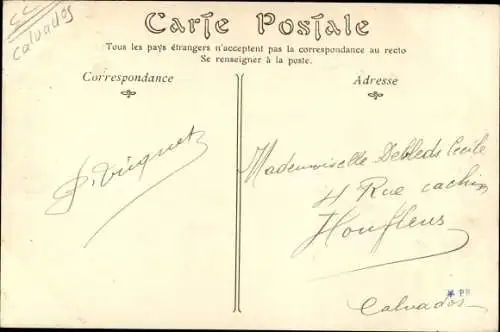 CC
Calvados
Carte Postale
Tous les pays étrangers n'acceptent pas la correspondance au recto
Se renseigner à la poste.
Correspondance
Adresse
Mademoiselle Debleds Cecile
4 Rue cachin
Honfleurs
Calvados
* PR